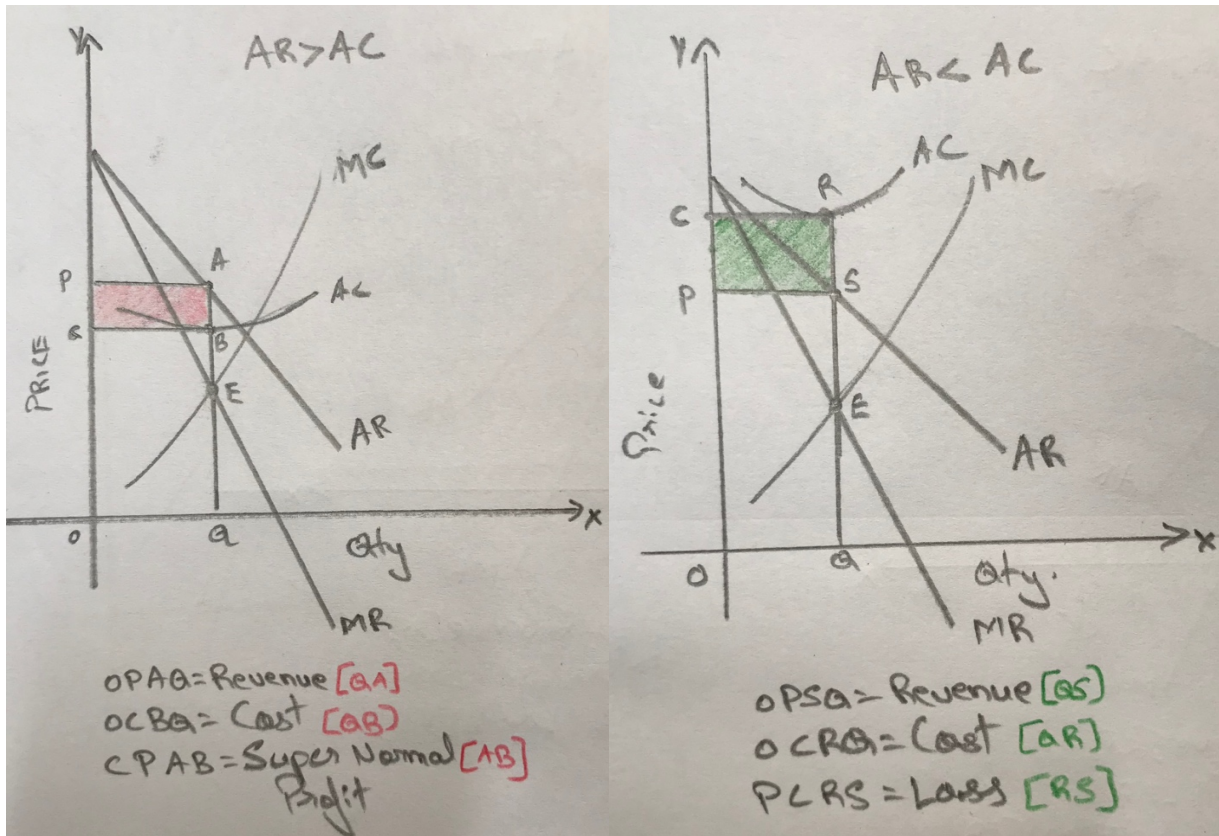 Y
AR>AC
MC
P
A
AC
C
B
PRICE
E
AR
O
Q
Qty
X
MR
OPAQ=Revenue [QA]
OCBQ= Cost [QB]
CPAB=Super Normal [AB]
Profit
Y
AR< AC
AC
MC
R
C
P
S
Price
E
AR
O
Q
Qty.
X
MR
OPSQ= Revenue [QS]
OCRQ= Cost [QR]
PCRS = Loss [RS]